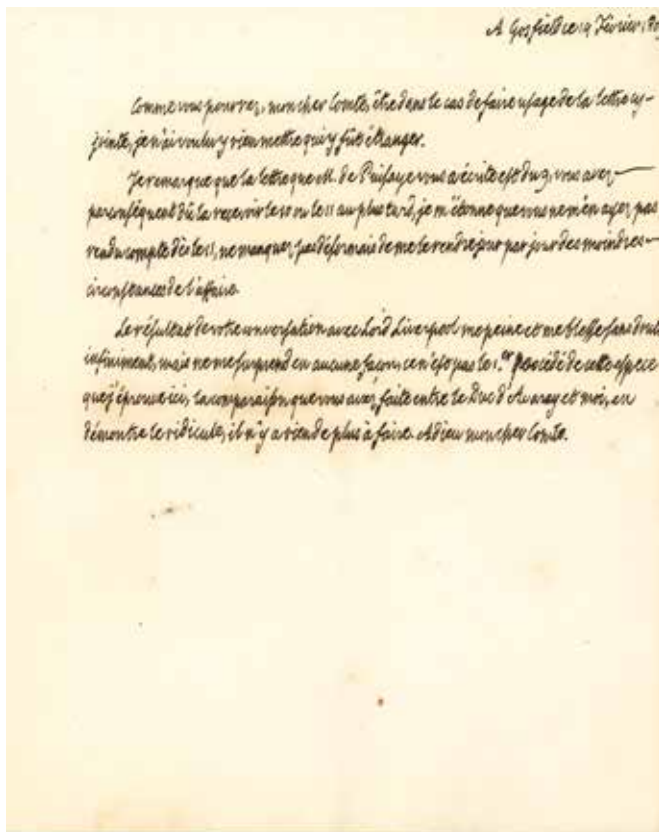 A Gosfield ce 19 Février 180
Comme vous pourrez, mon cher Comte, être dans le cas de faire usage de la lettre cy-
jointe, je n'ai voulu y rien mettre qui y fût étranger.
Je remarque que la lettre que M. de Puisaye vous a écrite est du 9, vous avez
par conséquent dû la recevoir le 10 ou le 11 au plus tard, je m'étonne que vous ne m'en ayez pas
rendu compte dès le 11, ne manquez pas désormais de me le rendre jour par jour des moindres
circonstances de l'affaire.
Le résultat de votre conversation avec Lord Liverpool me peine et me blesse sans doute
infiniment, mais ne me surprend en aucune façon, ce n'est pas le 1.er procédé de cette espèce
que j'éprouve ici, la comparaison que vous avez faite entre le Duc d'Avaray et moi, en
démontre le ridicule, il n'y a rien de plus à faire. Adieu mon cher Comte.